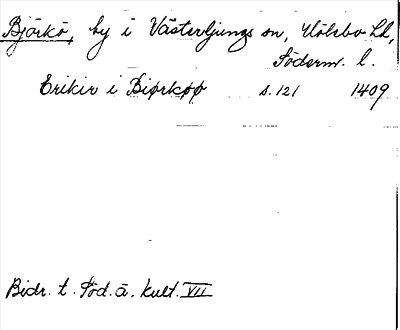 Björkö, by i Västerljungs sn, Hölebo hd,
Söderm. l.
Erikir i Biørkøø s. 121 1409
Bidr. t. Söd. ä. kult. VII